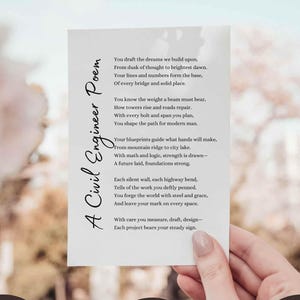 A Civil Engineer Poem
You draft the dreams we build upon,
From dusk of thought to brightest dawn.
Your lines and numbers form the base,
Of every bridge and solid place.
You know the weight a beam must bear,
How towers rise and roads repair.
With every bolt and span you plan,
You shape the path for modern man.
Your blueprints guide what hands will make,
From mountain ridge to city lake.
With math and logic, strength is drawn—
A future laid, foundations strong.
Each silent wall, each highway bend,
Tells of the work you deftly penned.
You forge the world with steel and grace,
And leave your mark on every space.
With care you measure, draft, design—
Each project bears your steady sign.